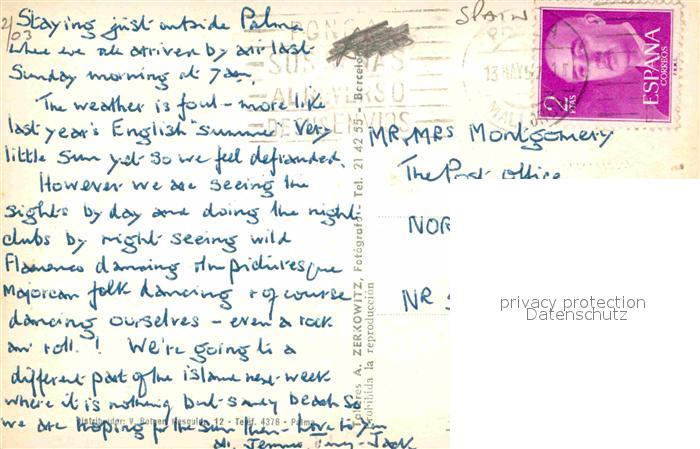 Staying just outside Palma
where we all arrived by air last
Sunday morning at 7am.
The weather is foul - more like
last year's English "summer". Very
little sun yet so we feel defrauded.
However we are seeing the
sights by day and doing the night
clubs by night seeing wild
Flamenco dancing & picturesque
Majorcan folk dancing & of course
dancing ourselves - even a rock
an' roll.! We're going to a
different part of the island next week
where it is nothing but sandy beach so
we are hoping for the sun then - Love to you
all. Jack
2/03
SPAIN
PONGA
SUS SEÑAS
AL REVERSO
DE SUS ENVIOS
13 MAY 57
ESPAÑA
CORREOS
2 PTAS
MR, MRS Montgomery
The Post Office
NOR
NR S
privacy protection
Datenschutz
Talleres A. ZERKOWITZ, Fotógrafo - Tel. 21 42 55 - Barcelona
Prohibida la reproducción
Distribuidor: V. 12 - Teléf. 4376 - Palma